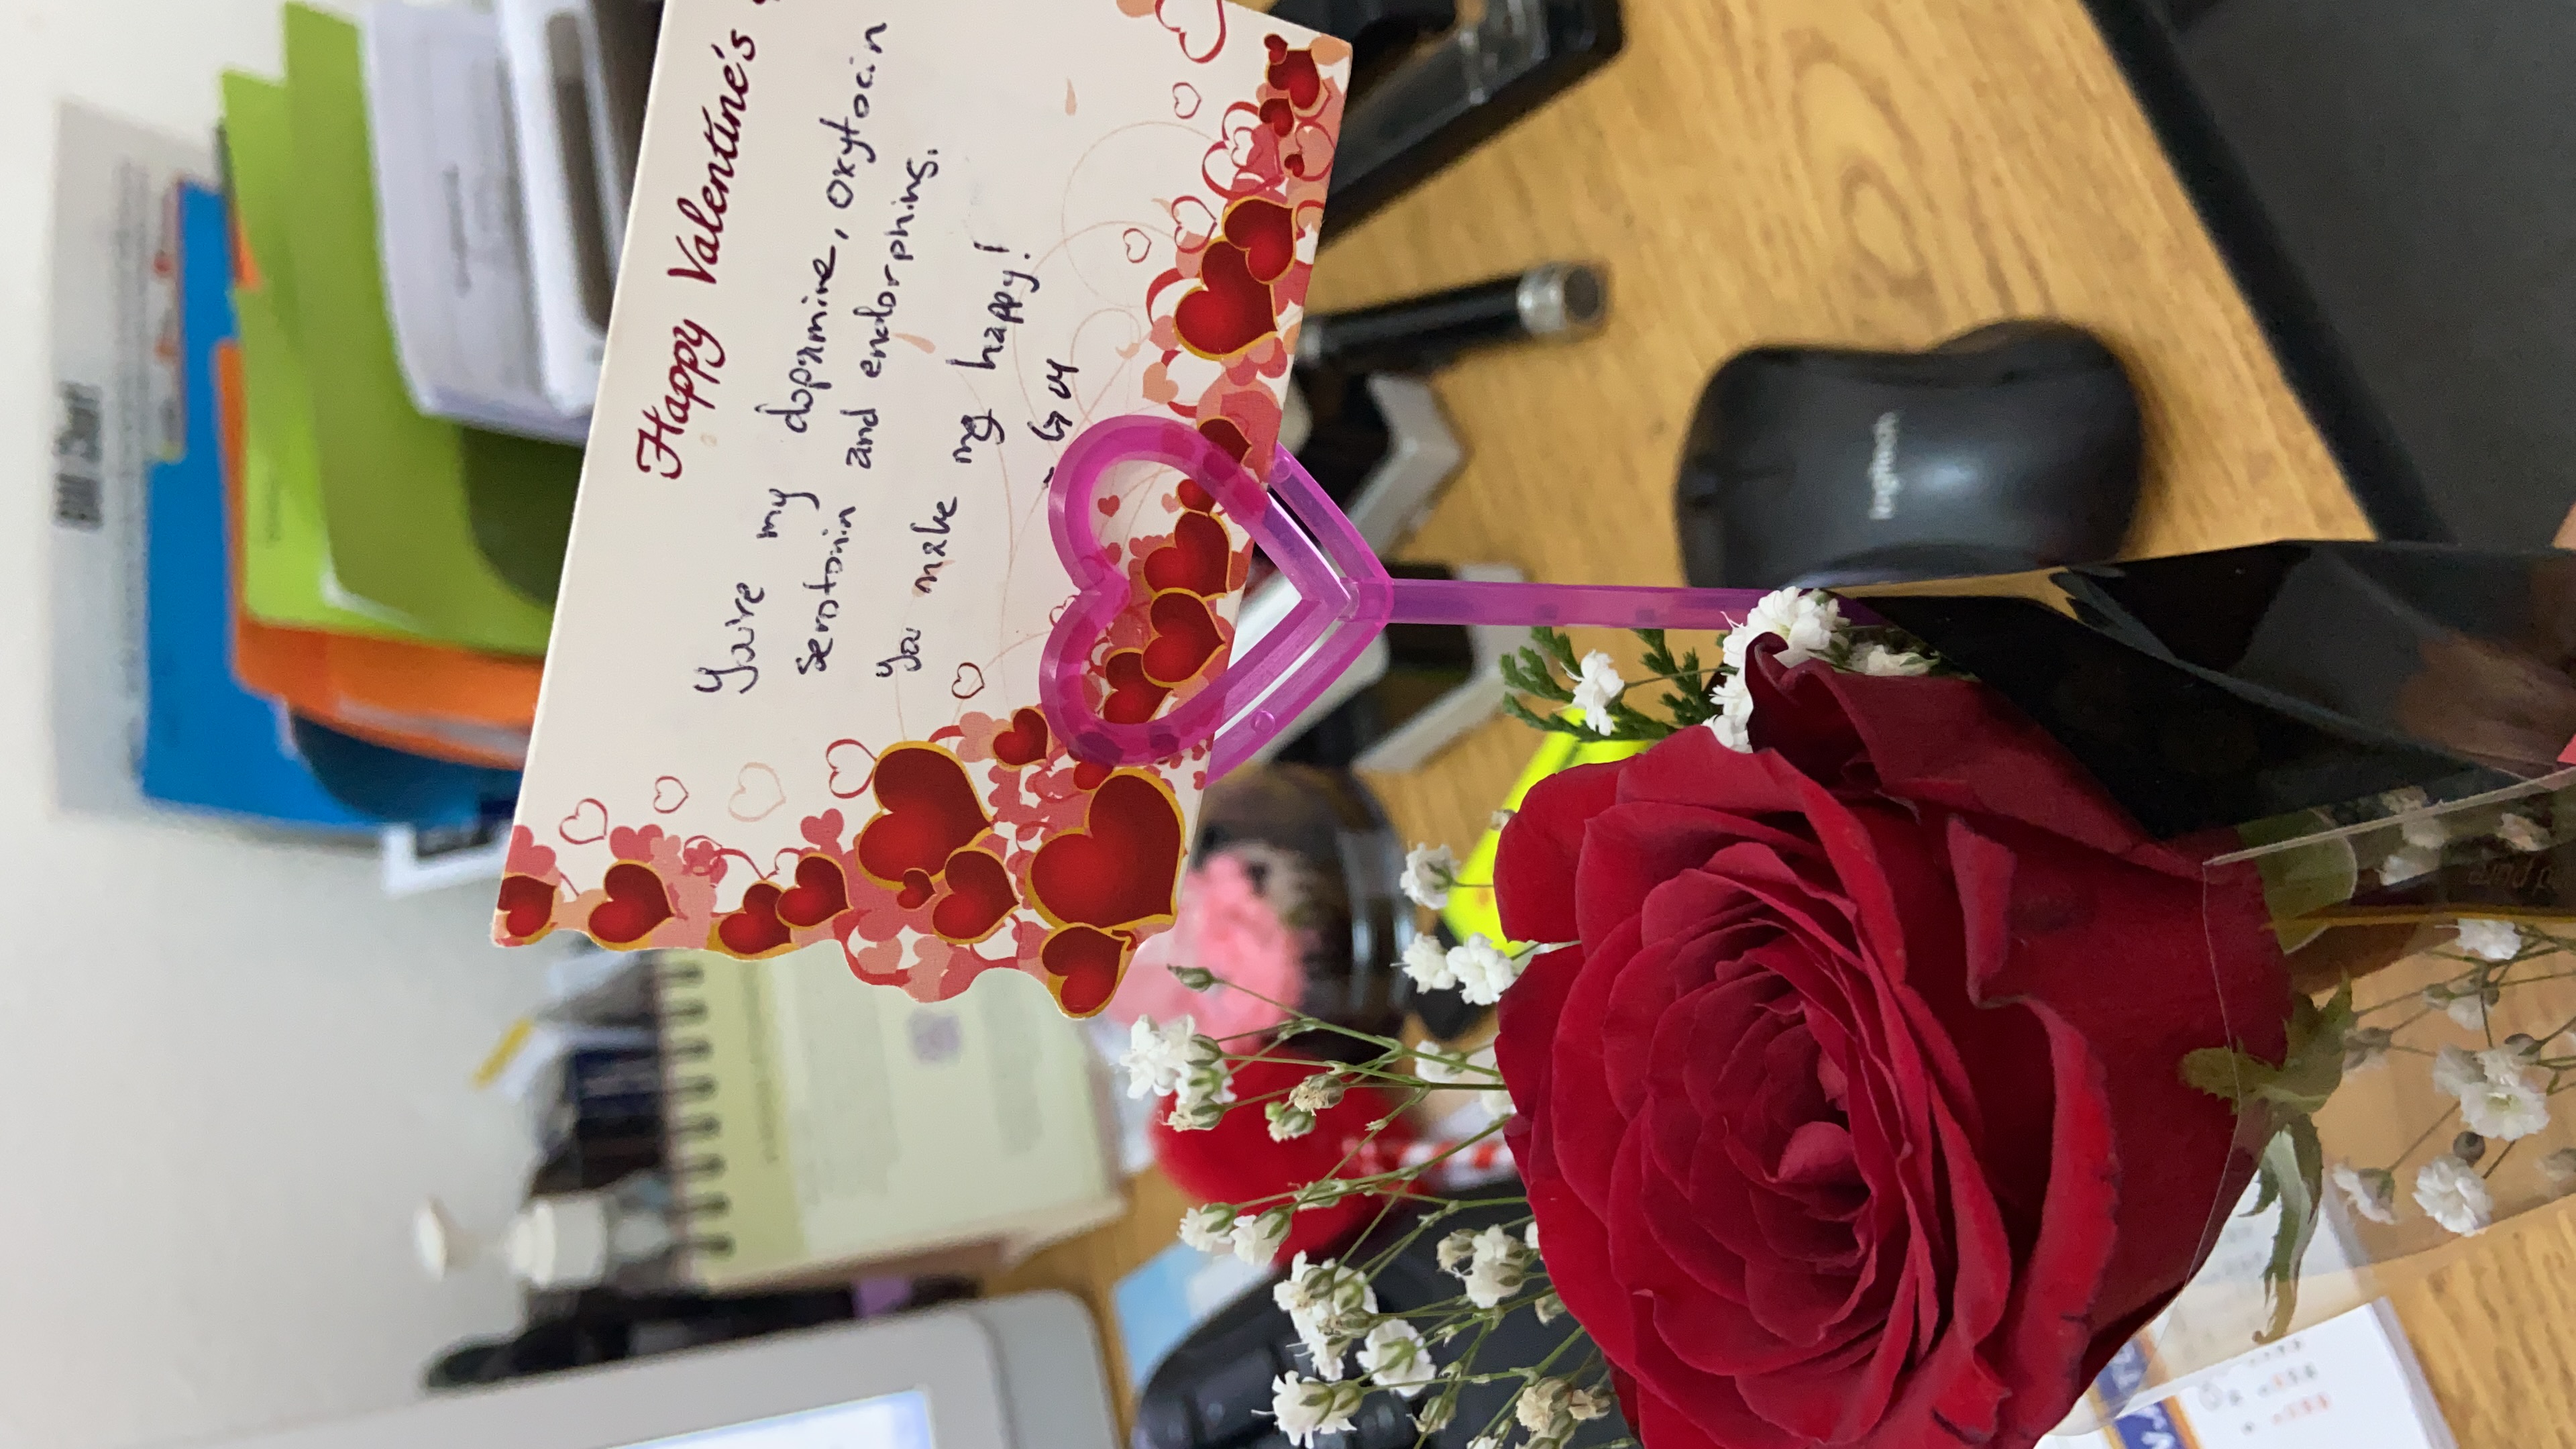 BMI Chart
Happy Valentine's
You're my dopamine, oxytocin
serotonin and endorphins.
You make my happy!
- Guy
logitech